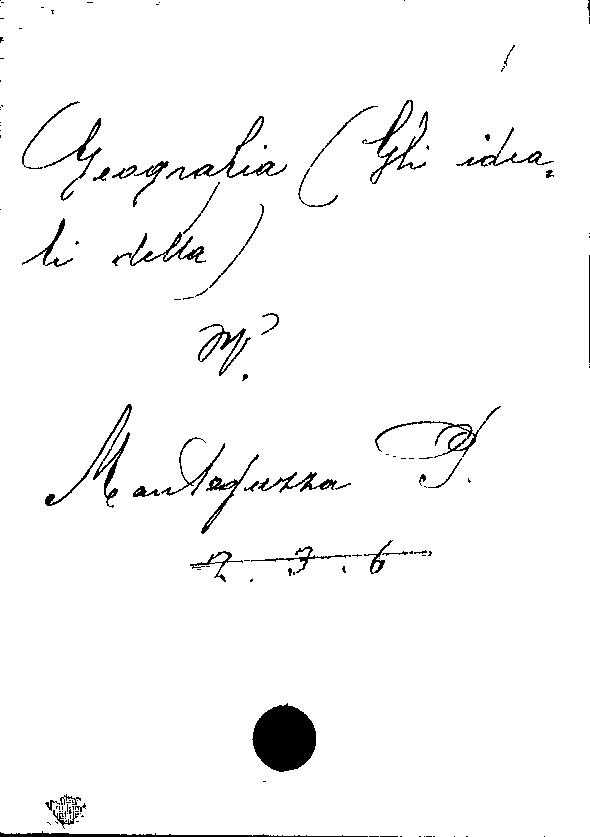 Geografia (Gli idea=
li della)
V.
Mantegazza P.
2. 3. 6